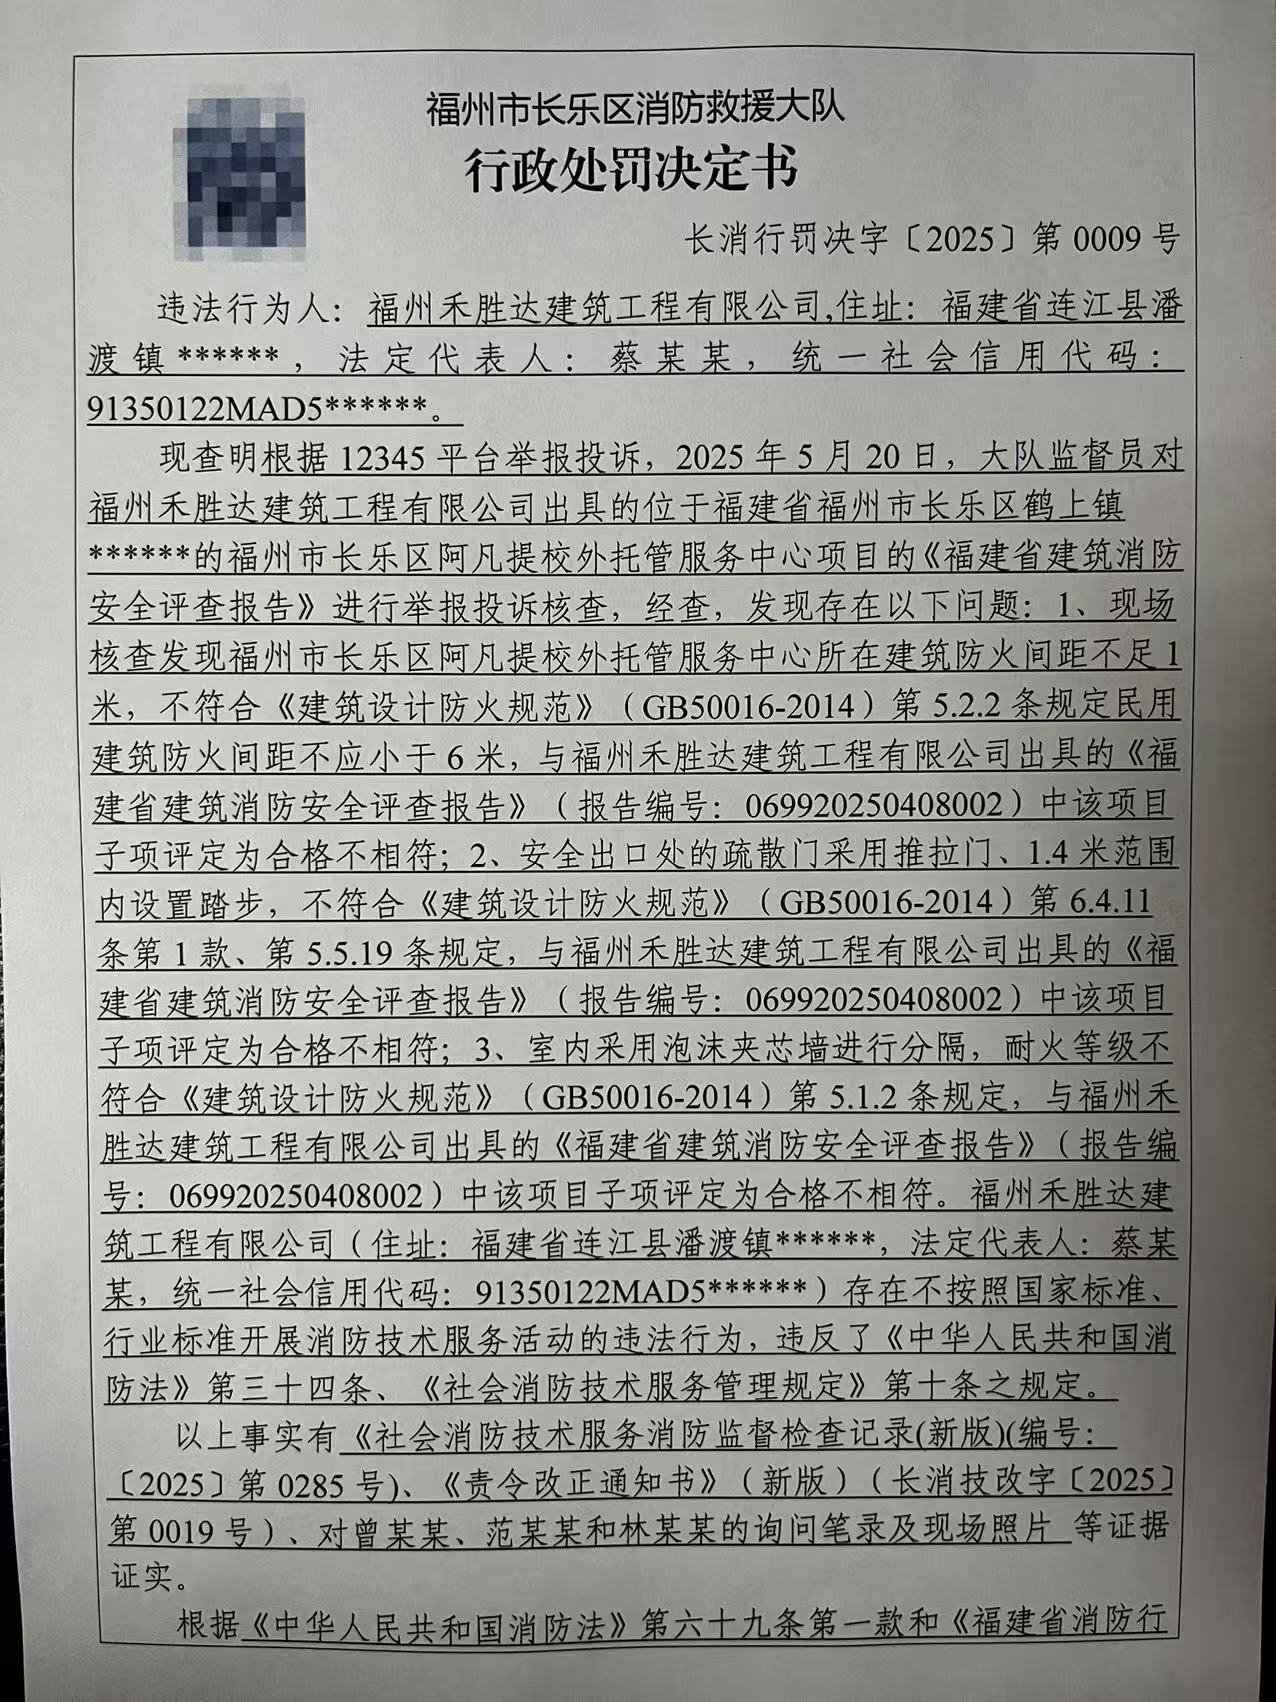 福州市长乐区消防救援大队
行政处罚决定书
长消行罚决字〔2025〕第 0009 号
违法行为人：福州禾胜达建筑工程有限公司,住址：福建省连江县潘
渡镇******，法定代表人：蔡某某，统一社会信用代码：
91350122MAD5******。
现查明根据 12345 平台举报投诉，2025 年 5 月 20 日，大队监督员对
福州禾胜达建筑工程有限公司出具的位于福建省福州市长乐区鹤上镇
******的福州市长乐区阿凡提校外托管服务中心项目的《福建省建筑消防
安全评查报告》进行举报投诉核查，经查，发现存在以下问题：1、现场
核查发现福州市长乐区阿凡提校外托管服务中心所在建筑防火间距不足 1
米，不符合《建筑设计防火规范》（GB50016-2014）第 5.2.2 条规定民用
建筑防火间距不应小于 6 米，与福州禾胜达建筑工程有限公司出具的《福
建省建筑消防安全评查报告》（报告编号：069920250408002）中该项目
子项评定为合格不相符；2、安全出口处的疏散门采用推拉门、1.4 米范围
内设置踏步，不符合《建筑设计防火规范》（GB50016-2014）第 6.4.11
条第 1 款、第 5.5.19 条规定，与福州禾胜达建筑工程有限公司出具的《福
建省建筑消防安全评查报告》（报告编号：069920250408002）中该项目
子项评定为合格不相符；3、室内采用泡沫夹芯墙进行分隔，耐火等级不
符合《建筑设计防火规范》（GB50016-2014）第 5.1.2 条规定，与福州禾
胜达建筑工程有限公司出具的《福建省建筑消防安全评查报告》（报告编
号：069920250408002）中该项目子项评定为合格不相符。福州禾胜达建
筑工程有限公司（住址：福建省连江县潘渡镇******，法定代表人：蔡某
某，统一社会信用代码：91350122MAD5******）存在不按照国家标准、
行业标准开展消防技术服务活动的违法行为，违反了《中华人民共和国消
防法》第三十四条、《社会消防技术服务管理规定》第十条之规定。
以上事实有《社会消防技术服务消防监督检查记录(新版)(编号：
〔2025〕第 0285 号)、《责令改正通知书》（新版）（长消技改字〔2025〕
第 0019 号）、对曾某某、范某某和林某某的询问笔录及现场照片 等证据
证实。
根据《中华人民共和国消防法》第六十九条第一款和《福建省消防行